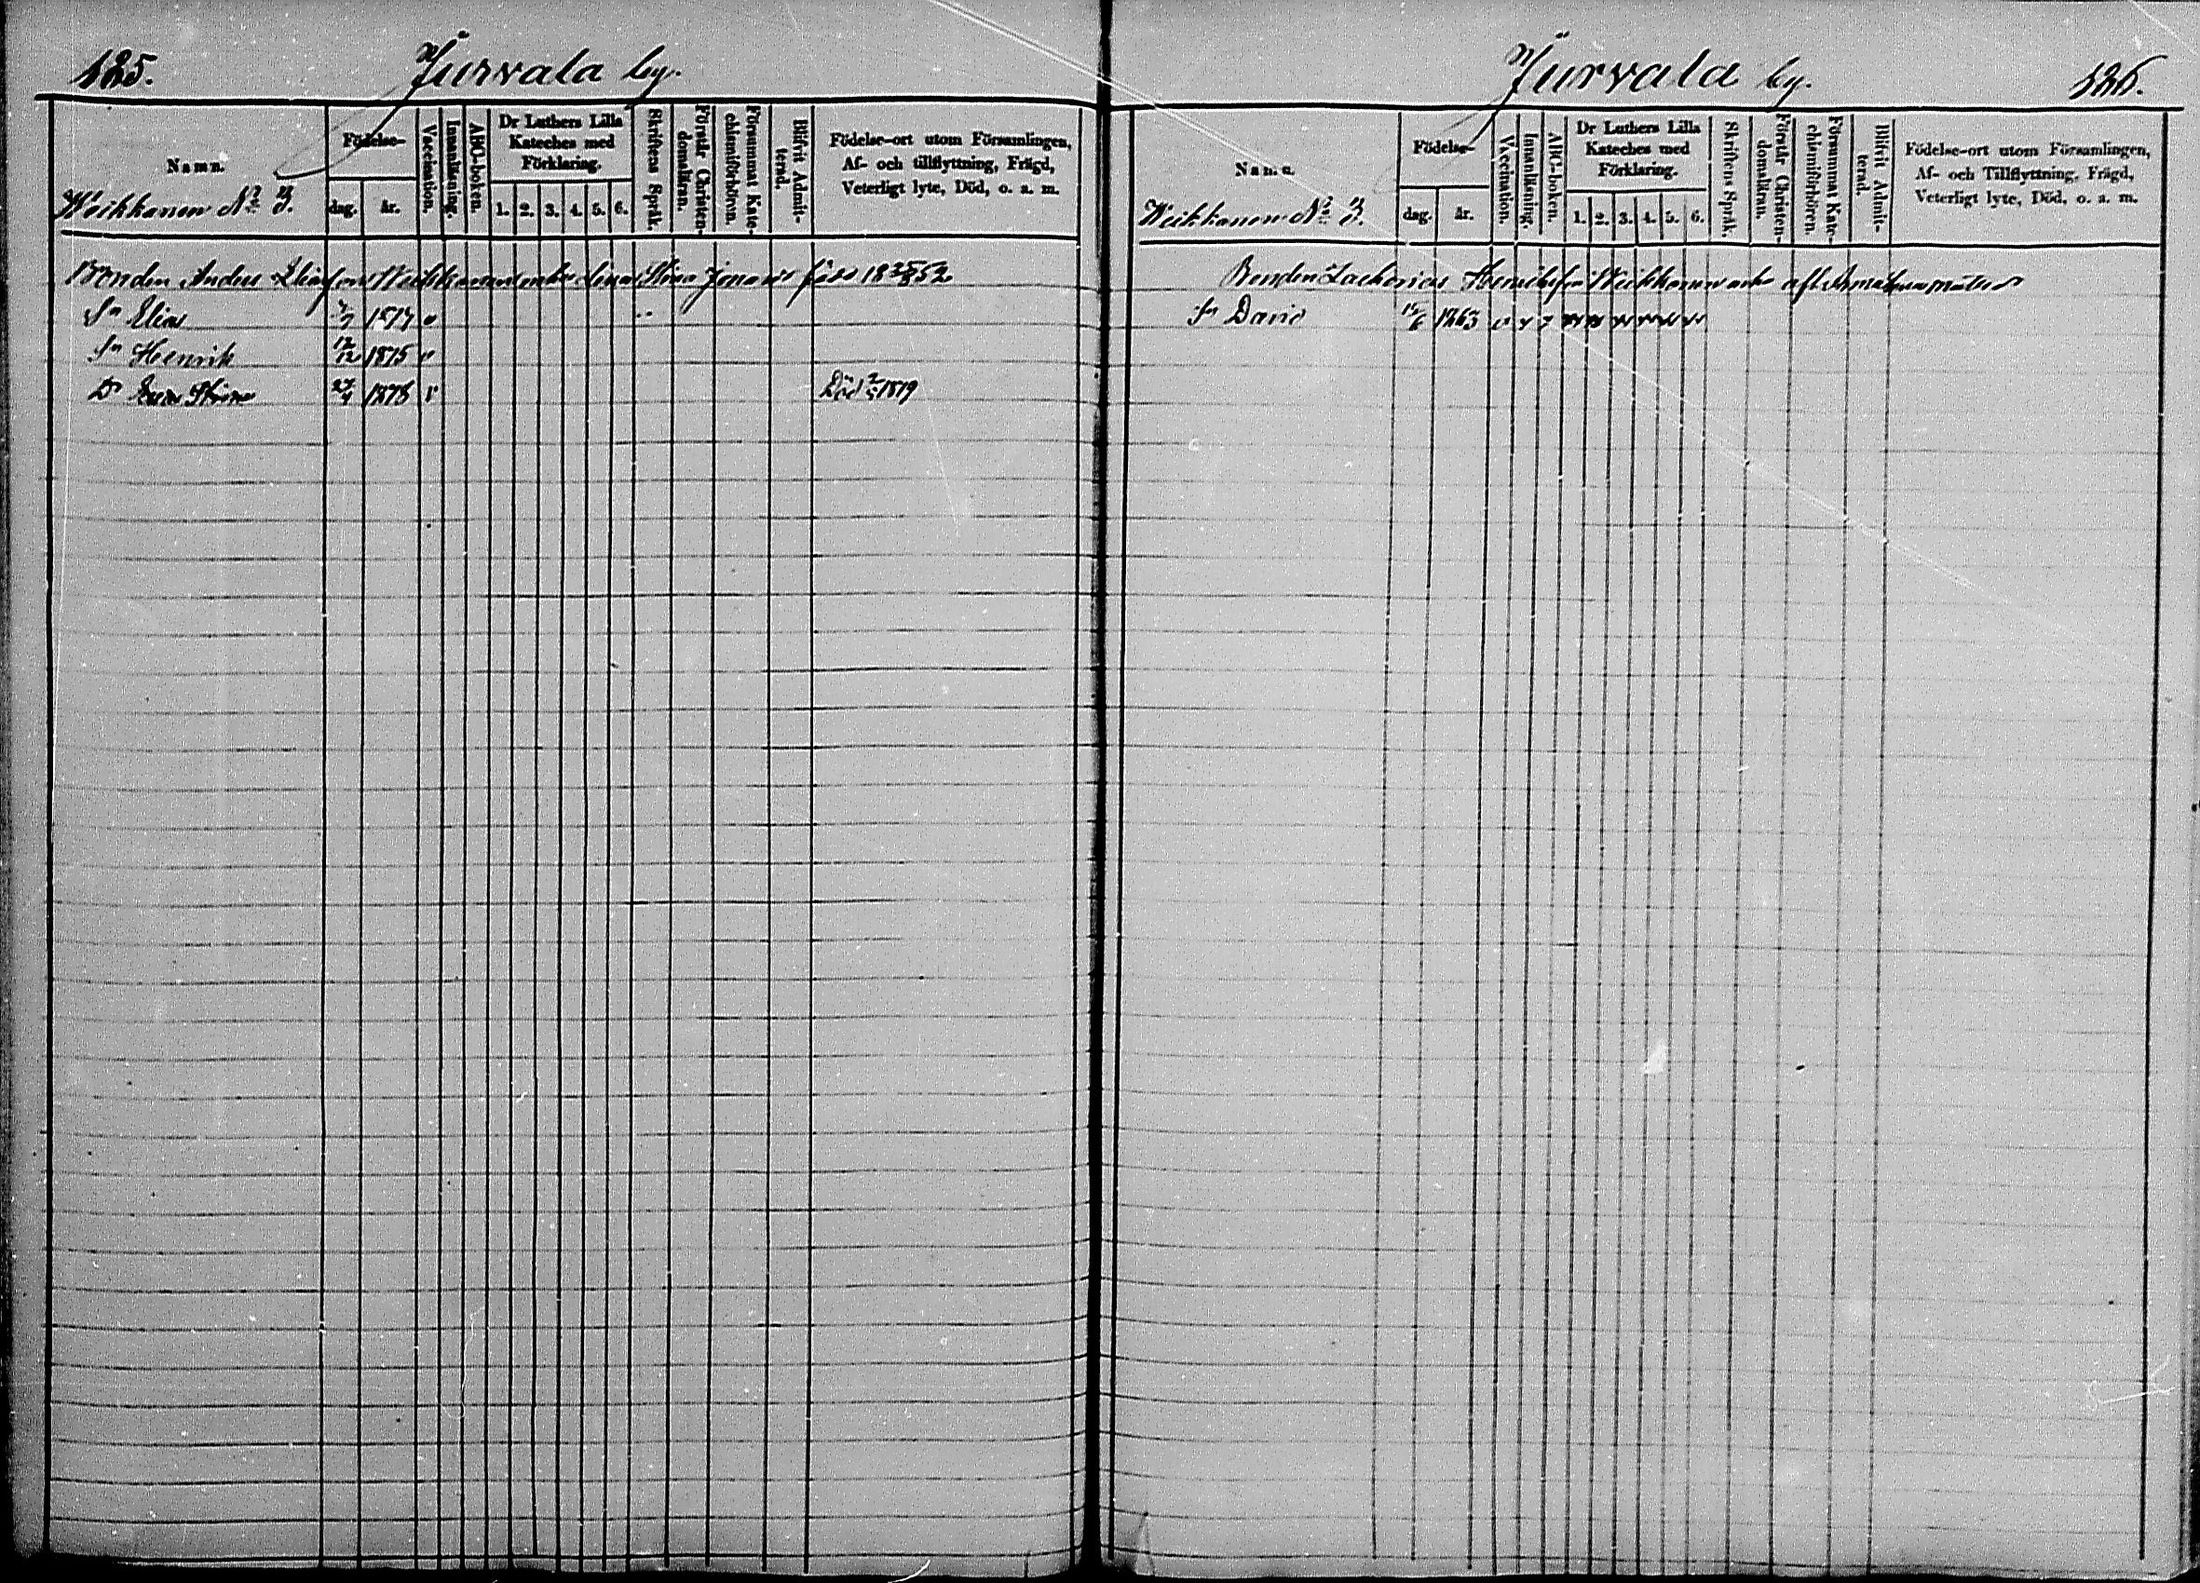 125.
Jurvala by.
Namn.
Födelse-
dag. år.
Vaccination.
Innanläsning.
ABC-boken.
Dr Luthers Lilla
Kateches med
Förklaring.
1. 2. 3. 4. 5. 6.
Skriftens Språk.
Förstår Christen-
domsläran.
Försummat Kate-
chismiförhören.
Blifvit Admit-
terad.
Födelse-ort utom Församlingen,
Af- och tillflyttning, Frägd,
Veterligt lyte, Död, o. a. m.
Weikkanen No 3.
Bonden Anders Eliasson Weikkanens enka Lena Stina Jonasd. född 18 52
Sn Elias 1874
Sn Henrik 12/12 1875
Dr Stina 27/4 1878 Död 1879
Jurvala by.
126.
Namn.
Födelse-
dag. år.
Vaccination.
Innanläsning.
ABC-boken.
Dr Luthers Lilla
Kateches med
Förklaring.
1. 2. 3. 4. 5. 6.
Skriftens Språk.
Förstår Christen-
domsläran.
Försummat Kate-
chismiförhören.
Blifvit Admit-
terad.
Födelse-ort utom Församlingen,
Af- och Tillflyttning, Frägd,
Veterligt lyte, Död, o. a. m.
Weikkanen No 3.
Bonden Zacharias Henriksson Weikkanen och afl.
Sn David 15/6 1863